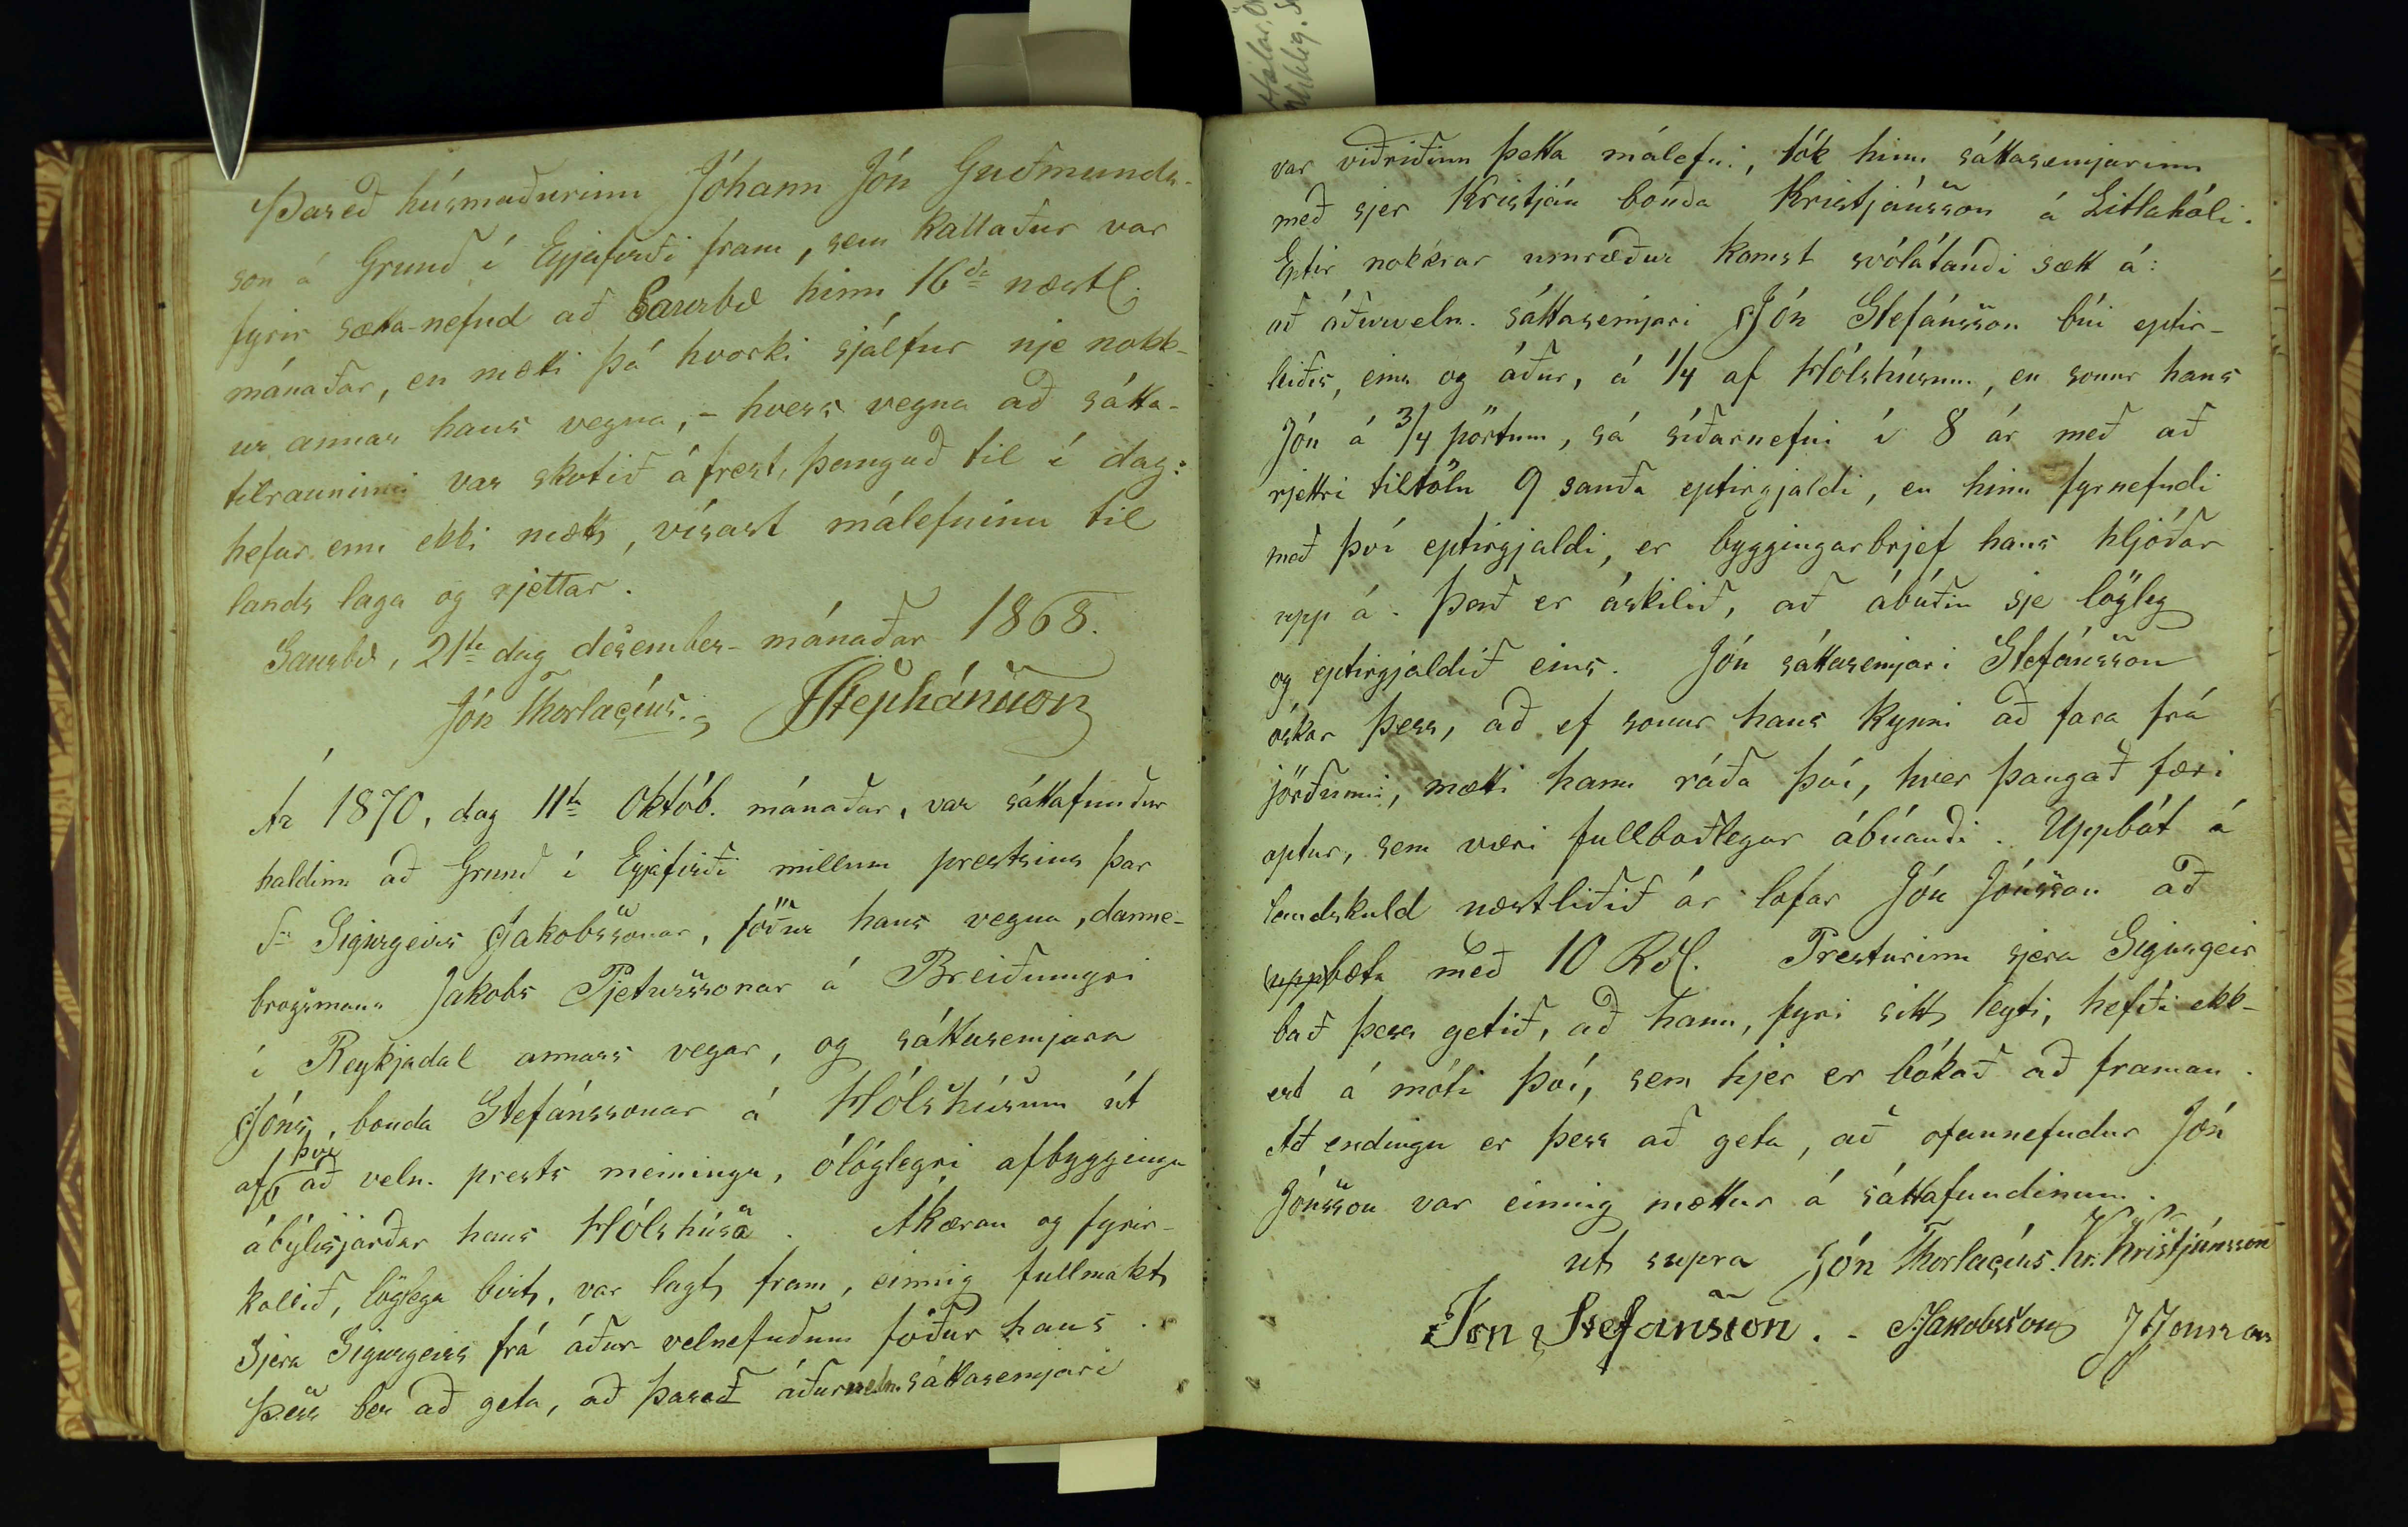 Þareð húsmaðurinn Jóhann Jón Guðmunds-
son á Grund í Eyjafirði fram, sem kallaður var
fyrir sátta-nefnd að Saurbæ hinn 16da næstl.
mánaðar, en mætti þá hvorki sjálfur nje nokk-
ur annar hans vegna, - hvess vegna að sátta-
tilrauninni var skotið á frest, þangað til í dag:
hefur enn ekki mætt, vísast málefninu til
lands laga og rjettar.
Saurbæ, 21ta dag desember-mánaðar 1868.
Jón Thorlacíus. JStephánsson
Ár 1870, dag 11ta Októb. mánaðar, var sáttafundur
haldinn að Grund í Eyjafirði millum prestsins þar
Sr Sigurgeirs Jakobssonar, föður hans vegna, danne-
brogsmanns Jakobs Pjeturssonar á Breiðumýri
í Reykjadal annars vegar, og sáttasemjara
Jóns, bonda Stefánssonar á Hólshúsum út
af því að veln. prests meiningu, ólöglegri afbyggingu
ábýlisjarðar hans Hólshúsa. Akæran og fyrir-
kallið, löglega birt, var lagt fram, einnig fullmakt
Sjera Sigurgeirs frá áður velnefndum föður hans.
Þess ber að geta, að þareð áðurveln. sáttasemjari
var viðriðinn þetta málefni, tók hinn sáttasemjarinn
með sjer Kristján bónda Kristjánsson á Litlahóli.
Eptir nokkrar umræður komst svólátandi sætt á:
að áðurveln. sáttasemjari Jón Stefánsson búi eptir-
leiðis, eins og áður, á 1/4 af Hólshúsum, en sonur hans
Jón á 3/4 pörtum, sá síðarnefni í 8 ár með að
rjettri tiltölu 9 sauða eptirgjaldi, en hinn fyrnefndi
með því eptirgjaldi, er byggingarbrjef hans hljóðar
upp á. Það er áskilið, að ábúðin sje lögleg
og eptirgjaldið eins. Jón sáttasemjari Stefánsson
óskar þess, að ef sonur hans kynni að fara frá
jörðunni, mætti hann ráða því, hver þangað færi
aptur, sem væri fullboðlegur ábúandi. Uppbót á
landskuld næstliðið ár lofar Jón Jónsson að
uppbæta með 10 Rdl. Presturinn sjera Sigurgeir
bað þess getið, að hann, fyri sitt leyti, hefði ekk-
ert á móti því, sem hjer er bókað að framan.
Að endingu er þess að geta, að ofannefndur Jón
Jónsson var einnig mættur á sáttafundinum.
ut supra Jón Thorlacíus. Kr. Kristjánsson
Jón Stefánsson. - SJakobsson JJónsson